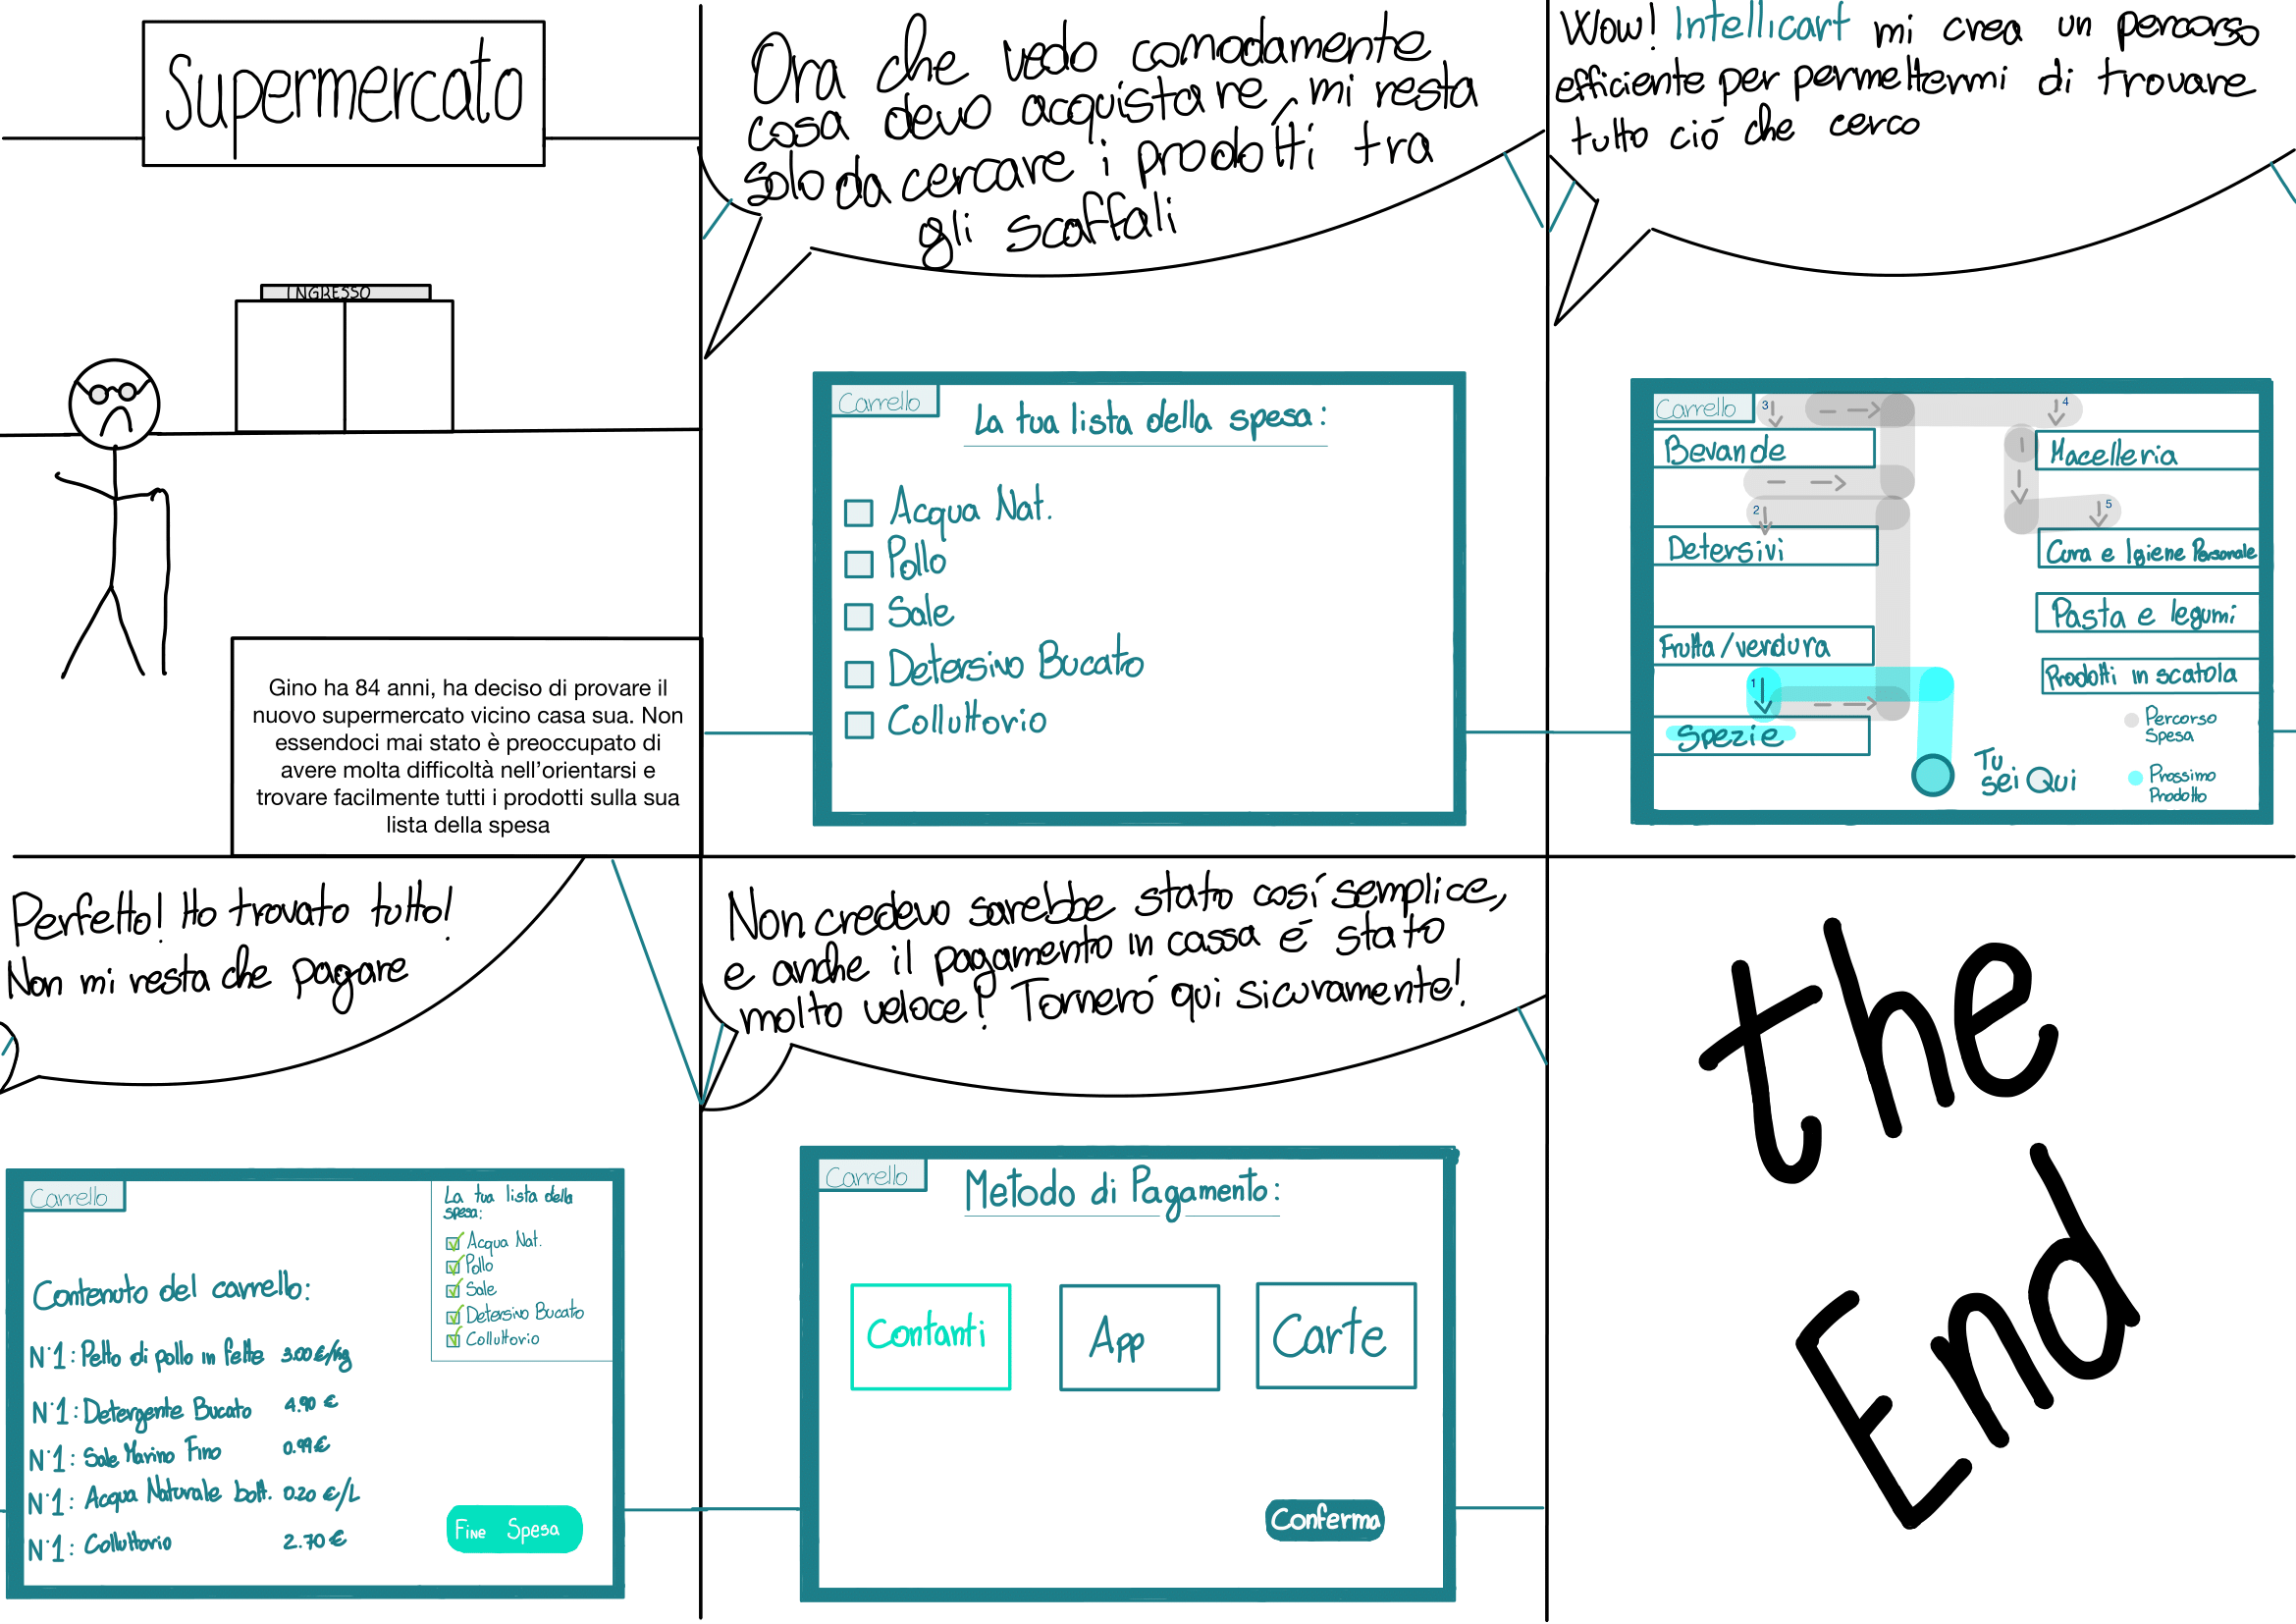 Supermercato
INGRESSO
Gino ha 84 anni, ha deciso di provare il
nuovo supermercato vicino casa sua. Non
essendoci mai stato è preoccupato di
avere molta difficoltà nell'orientarsi e
trovare facilmente tutti i prodotti sulla sua
lista della spesa
Ora che vedo comodamente
cosa devo acquistare, mi resta
solo da cercare i prodotti tra
gli scaffali
Carrello
La tua lista della spesa:
Acqua Nat.
Pollo
Sale
Detersivo Bucato
Colluttorio
Wow! Intellicart mi crea un percorso
efficiente per permettermi di trovare
tutto ció che cerco
Carrello
3
4
Bevande
Macelleria
2
5
Detersivi
Cura e Igiene Personale
Pasta e legumi
Frutta/verdura
Prodotti in scatola
1
Spezie
Percorso
Spesa
Tu
sei Qui
Prossimo
Prodotto
Perfetto! Ho trovato tutto!
Non mi resta che pagare
Carrello
La tua lista della
spesa:
Acqua Nat.
Pollo
Sale
Detersivo Bucato
Colluttorio
Contenuto del carrello:
N°1: Petto di pollo in fette 3.00 €/kg
N°1: Detergente Bucato 4.90 €
N°1: Sale Marino Fino 0.99 €
N°1: Acqua Naturale bott. 0.20 €/L
N°1: Colluttorio 2.70 €
Fine Spesa
Non credevo sarebbe stato cosí semplice,
e anche il pagamento in cassa é stato
molto veloce! Torneró qui sicuramente!
Carrello
Metodo di Pagamento:
Contanti
App
Carte
Conferma
the
End